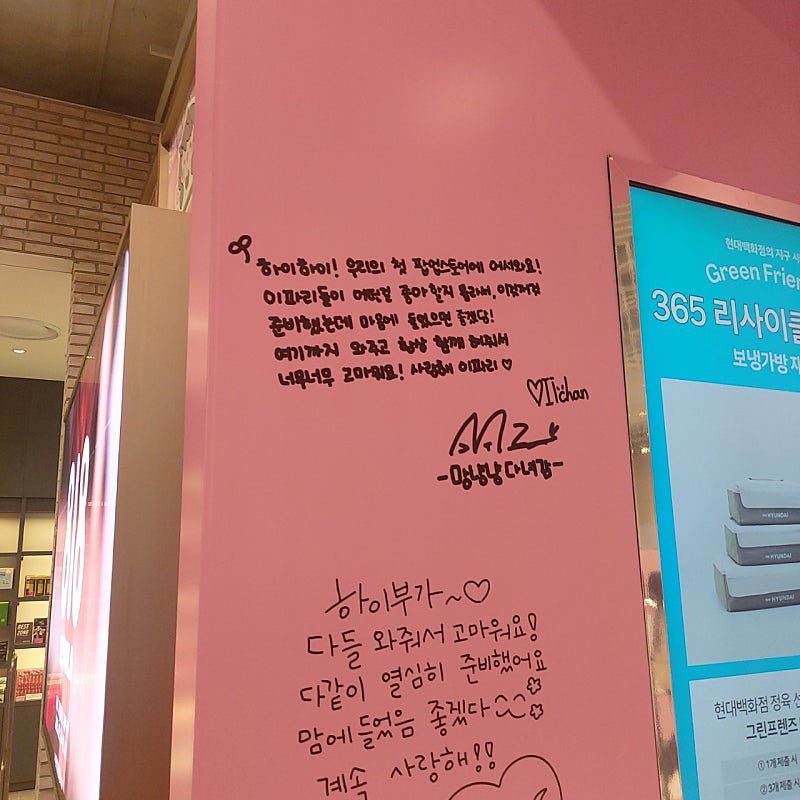 하이하이! 우리의 첫 팝업스토어에 어서와요!
이파리들이 어떤걸 좋아할지 몰라서, 이것저것
준비했는데 마음에 들었으면 좋겠당!
여기까지 와주고 항상 함께 해줘서
너무너무 고마워요! 사랑해 이파리♡
♡Ilchan
-망냉냥 다녀감-
하이부가~♡
다들 와줘서 고마워요!
다같이 열심히 준비했어요
맘에들었음 좋겠다
계속 사랑해!!
현대백화점의 지구
Green Frien
365 리사이클
보냉가방
THE HYUNDAI
THE HYUNDAI
THE HYUNDAI
현대백화점 정육
그린프렌즈
①1개 제출 시
②3개 제출
BEST
ZONE